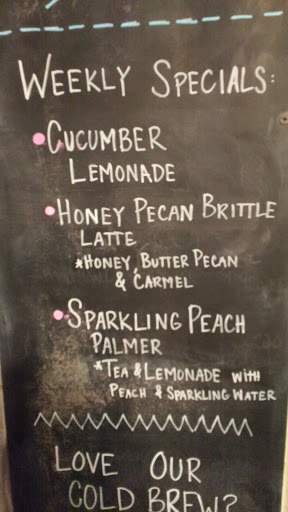 WEEKLY SPECIALS:
•CUCUMBER
LEMONADE
•HONEY PECAN BRITTLE
LATTE
*HONEY, BUTTER PECAN
& CARMEL
•SPARKLING PEACH
PALMER
*TEA & LEMONADE WITH
PEACH & SPARKLING WATER
LOVE OUR
COLD BREW?